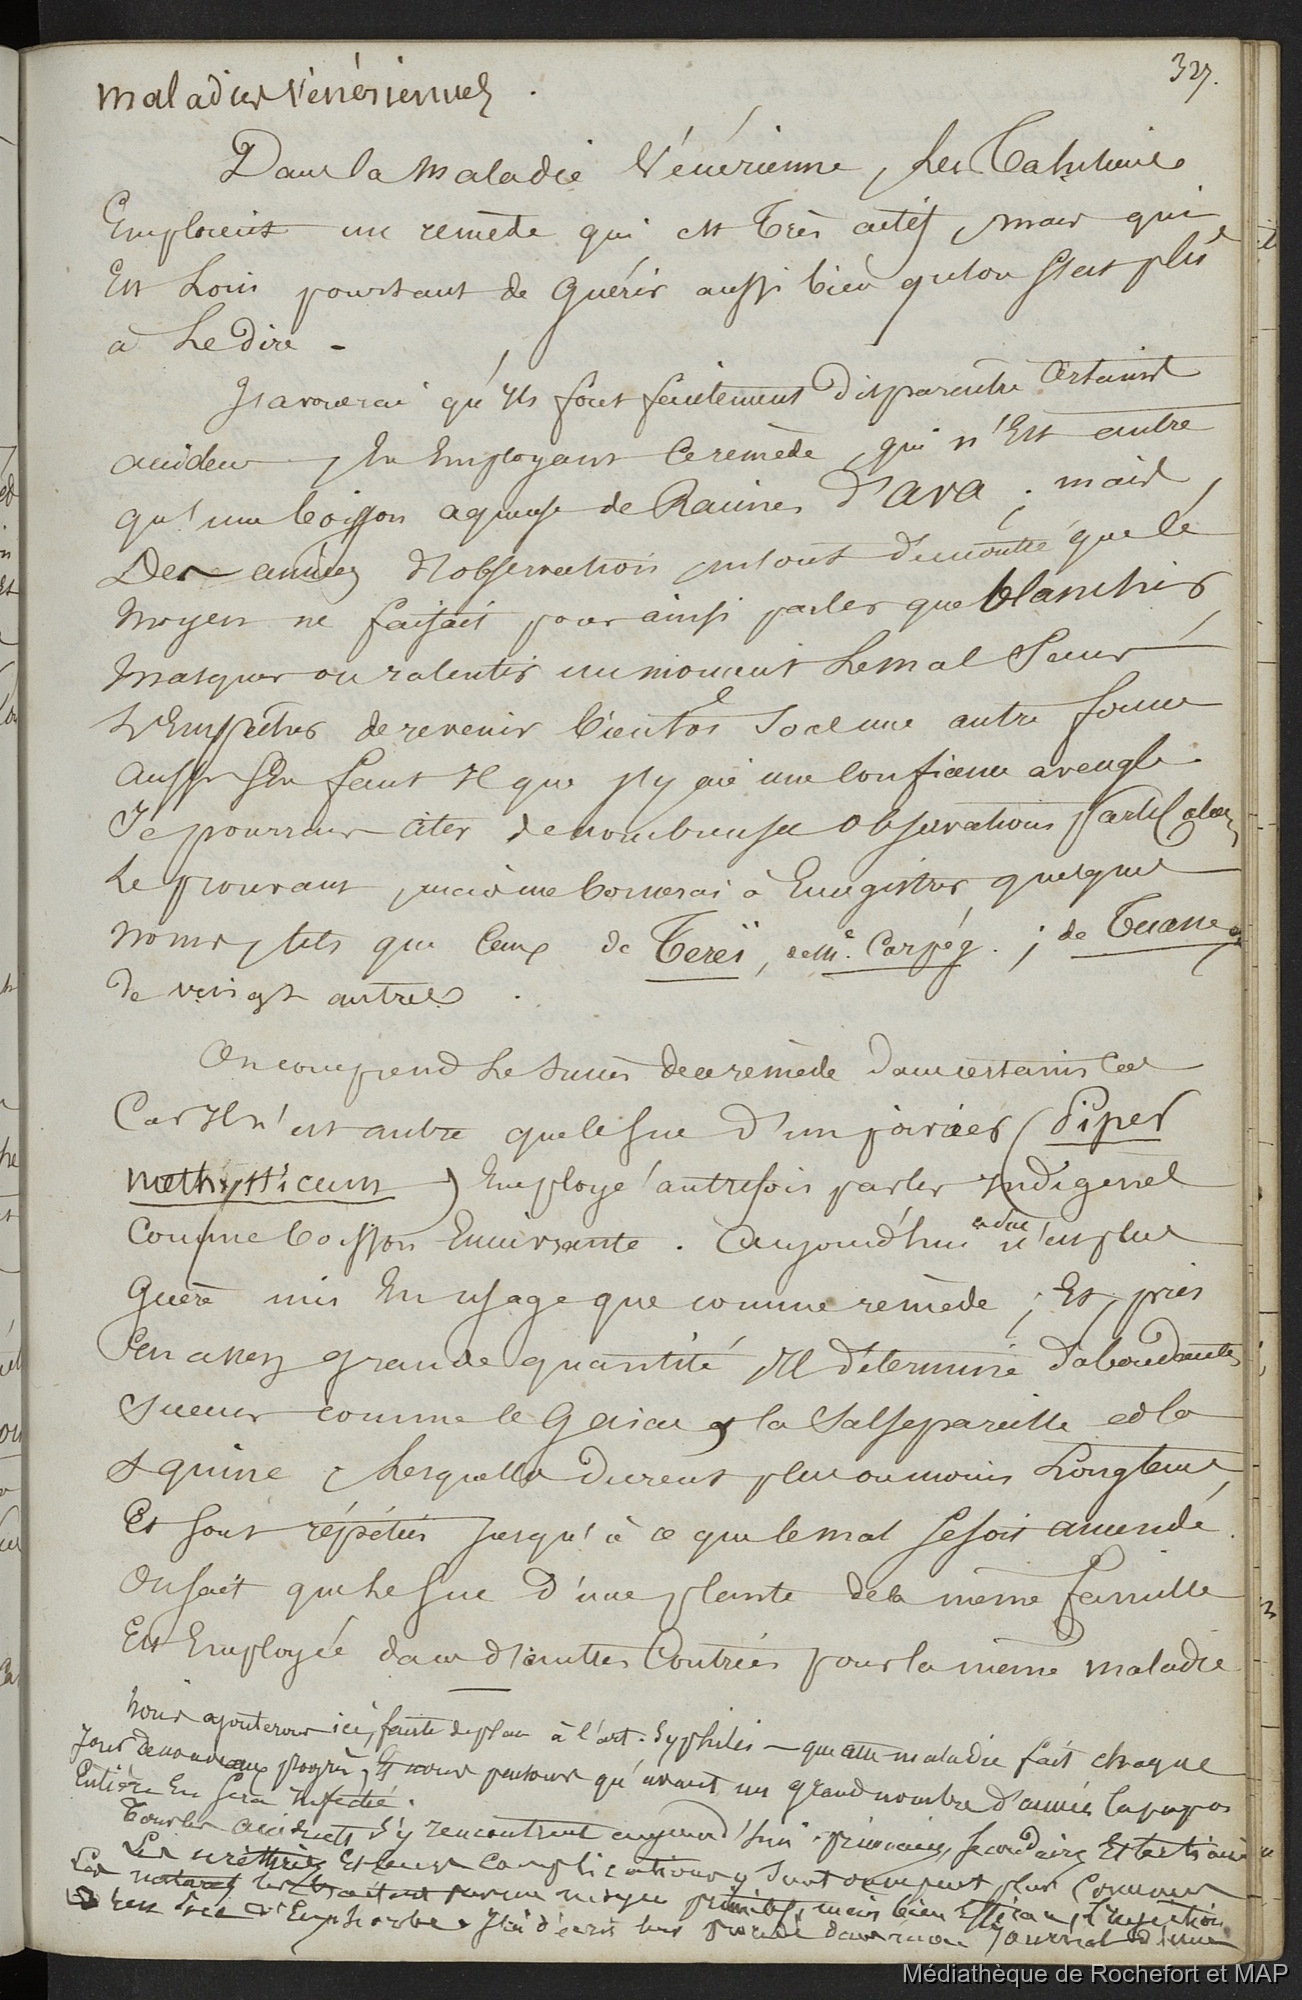 327.
Maladies Vénériennes.
Dans la maladie Vénérienne, les Tahitiens
Emploient un remède qui est très actif, mais qui
Est Loin pourtant de guérir aussi bien qu'on s'est plu
à Le Dire -
J'avouerai qu'ils font facilement Disparaitre Certains
accidens, En Employant ce remède, qui n'Est autre
qu'une boisson aqueuse de Racines d'ava ; mais,
Des années d'observation, m'ont démontré que le
moyen ne faisait pour ainsi parler que blanchir,
masquer ou ralentir un moment Le mal Sans
L'Empêcher de revenir bientôt sous une autre forme
aussi s'En faut Il que j'y aie une Confiance aveugle.
Je pourrais citer de nombreuses observations
Le prouvant, mais me bornerai à Enregistrer quelques
noms, tels que Ceux de Tereï, de Me. ; de
de vingt autres.
On comprend Le succès de ce remède dans certains cas
Car Il n'est autre que le suc d'un poivrier (Piper
methysticum) Employé autrefois par les Indigènes
Comme boisson Enivrante. Aujourd'hui n'est plus
Guère mis En usage que comme remède ; Et, pris
En assez grande quantité Il détermine d'abondantes
sueurs comme le Gaïac, la Salsepareille et la
squine, Lesquelles durent plus ou moins Longtems,
Et sont répétées jusqu'à ce que le mal se soit amendé.
On sait que Le suc d'une plante de la même famille
Est Employée dans d'autres Contrées pour la même maladie
Nous ajouterons ici, faute de place à l'art. Syphilis - que cette maladie fait chaque
Jour de nouveaux progrès, Et nous pensons qu'avant un grand nombre d'années la
Entière En sera infectée.
Tous les accidents s'y rencontrent aujourd'hui - primaires, secondaires Et tertiaires
Les uréthrites Et leurs Complications y sont un peu plus Communes
Les naturels les traitent par un moyen primitif, mais bien Efficace, l'injection
Euphorbe. J'ai décrit leur procédé dans mon Journal d'une
Médiathèque de Rochefort et MAP